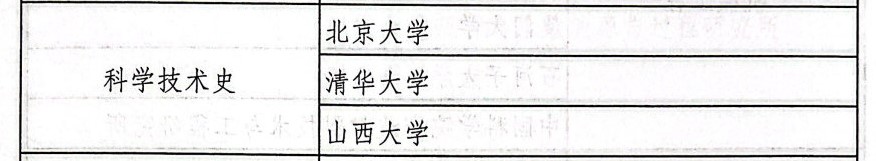 北京大学
科学技术史
清华大学
山西大学